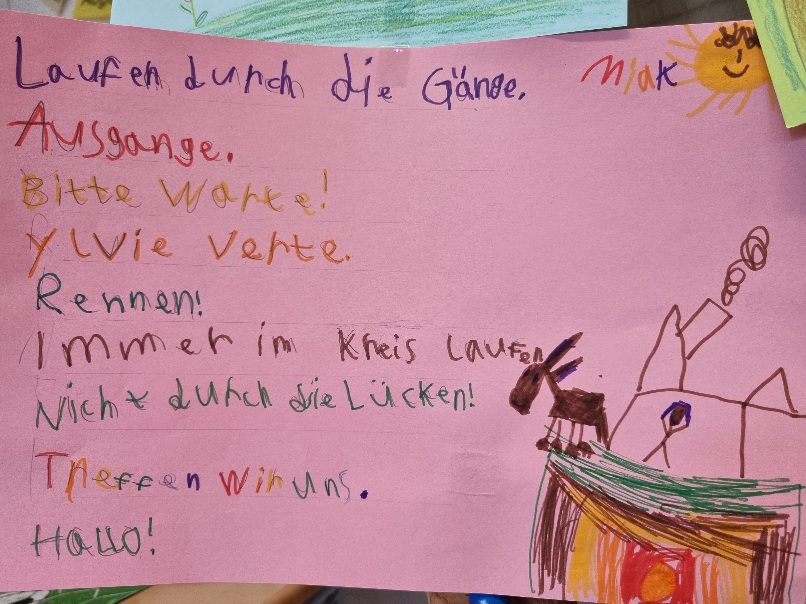 Laufen durch die Gänge.
Ausgange.
Bitte Warte!
Ylvie Verte.
Rennen!
Immer im Kreis Laufen
Nicht durch die Lücken!
Treffen wir uns.
Hallo!